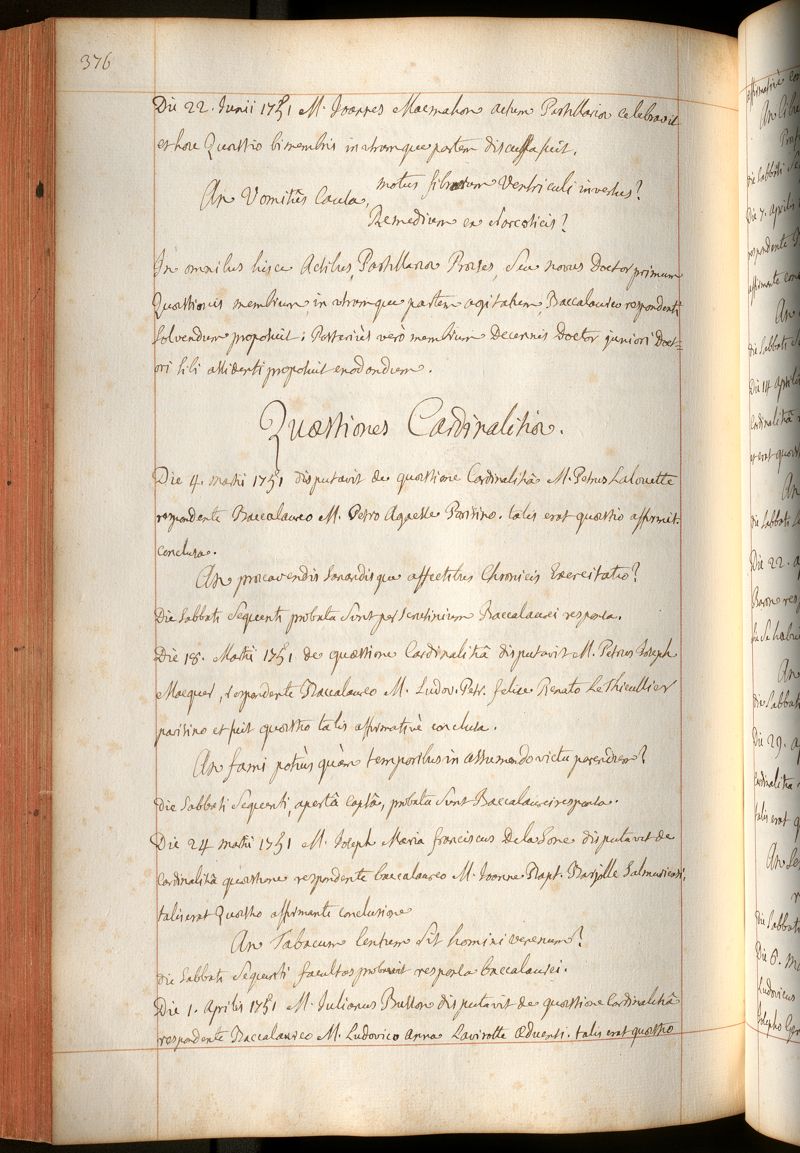 376
Die 22. Junii 1751 M. Joannes Macmahon actum Pastillariæ celebravit
et hæc Quæstio bimembris in utramque partem discussa fuit.
An Vomitûs Causa, motus fibrarum Ventriculi inversus?
Remedium ex Narcoticis?
In omnibus hisce Actibus, Pastillariæ Præses, seu novus Doctor primum
Quæstionis membrum in utramque partem agitatum, Baccalaureo respondenti
solvendum proposuit; Posteriùs verò membrum Decennis Doctor juniori Doct=
ori sibi assidenti proposuit enodandum.
Quæstiones Cardinalitiæ.
Die 4. martii 1751 disputavit de quæstione Cardinalitiâ M. Petrus Lalouette
respondente Baccalaureo M. Petro Agnesse Parisino. talis erat quæstio affirmat.
conclusa.
An præcavendis sanandisque affectibus Chronicis Exercitatio?
Die Sabbati Sequenti probata sunt per scrutinium Baccalaurei responsa.
Die 18. Martii 1751 de quæstione Cardinalitiâ disputavit M. Petrus Joseph
Macquer, respondente Baccalaureo M. Ludov. Petr. felice Renato LeThieullier
parisino et fuit quæstio talis affirmativè conclusa.
An fami potiùs quàm temporibus in assumendo victu parendum?
die Sabbati Sequenti, apertâ capsâ, probata sunt Baccalaurei responsa.
Die 24 martii 1751 M. Joseph Maria franciscus DelaSone disputavit de
Cardinalitiâ quæstione respondente baccalaureo M. Joanne Bapt. Basjolle Salmuriensi,
talis erat Quæstio affirmante conclusione
An Tabacum lentum sit homini venenum?
die Sabbati Sequenti facultas probavit responsa baccalaurei.
Die 1. Aprilis 1751 M. Julianus Busson disputavit de quæstione Cardinalitiâ
respondente Baccalaureo M. Ludovico anna Lavirotte Æduensi. talis erat quæstio